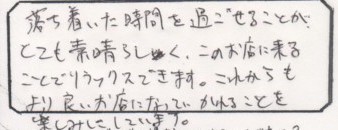 落ち着いた時間を過ごせることが、
とても素晴らしく、このお店に来る
ことでリラックスできます。これからも
より良いお店になっていかれることを
楽しみにしています。